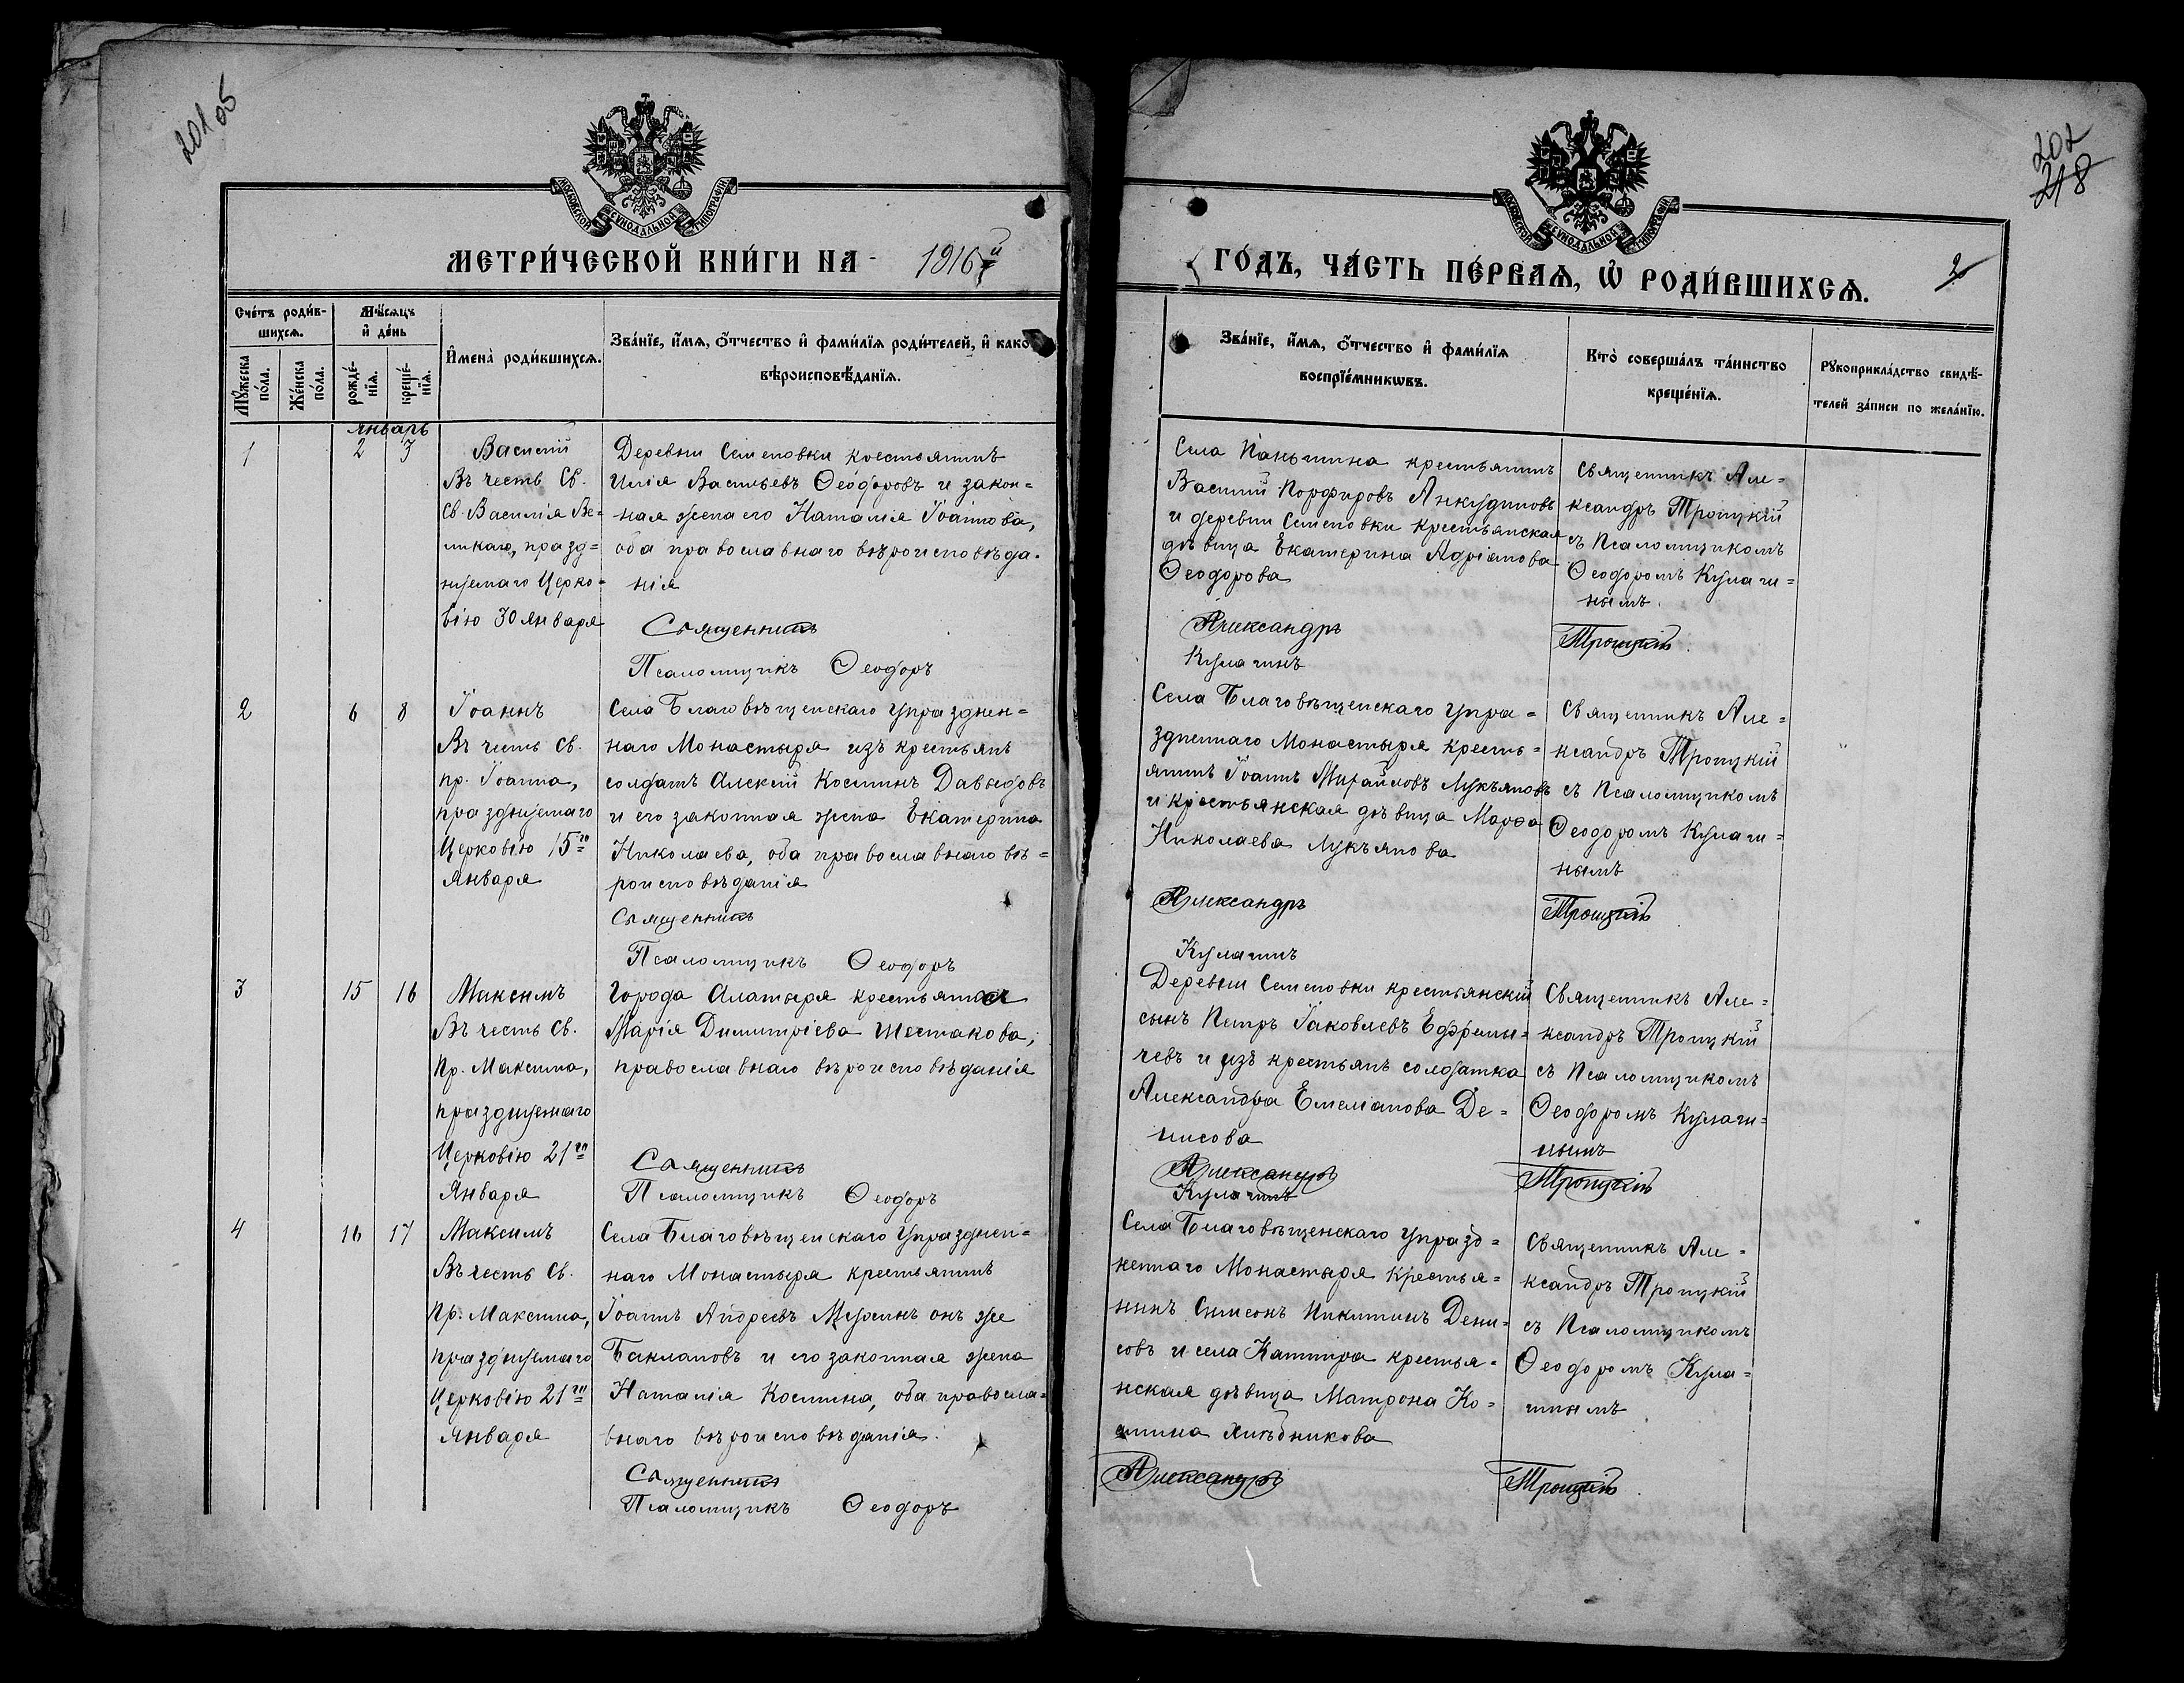 201 об
202
218
МОСКОВСКОЙ СѴНОДАЛЬНОЙ ТИПОГРАФІИ
МОСКОВСКОЙ СѴНОДАЛЬНОЙ ТИПОГРАФІИ
МЕТРИ́ЧЕСКОЙ КНИ́ГИ НА 1916й
ГО́ДЪ, ЧА́СТЬ ПЕ́РВАЯ, Ѽ РОДИ́ВШИХСЯ.
2
Сче́тъ роди́в-
шихся.
Мѣ́сяцъ
и҆ де́нь
Мꙋ́жеска по́ла.
Же́нска по́ла.
рожде́-нїя.
креще́-нїя.
И҆мена̀ роди́вшихся.
Зва́нїе, и҆́мя, о҆́тчество и҆ фами́лїя роди́телей, и҆ како
вѣроисповѣ́данїя.
Зва́нїе, и҆́мя, о҆́тчество и҆ фами́лїя
воспрїе́мникѡвъ.
Кто̀ соверша́лъ та́инство
креще́нїя.
Рꙋкоприкла́дство свидѣ́-
телей за́писи по жела́нїю.
Январь
1
2
3
Василій
Въ честь Св.
Св. Василія Ве=
ликаго, празд=
нуемаго Церко=
вію 30 января
Деревни Семеновки крестьянинъ
Илія Васильевъ Ѳеодоровъ и закон=
ная жена его Наталія Іоаннова,
оба православнаго вѣроисповѣда=
нія
Священникъ
Псаломщикъ Ѳеодоръ
Села Паньшина крестьянинъ
Василій Порфировъ Анкудиновъ
и деревни Семеновки крестьянская
дѣвица Екатерина Адріанова
Ѳеодорова
Александръ
Кулагинъ
Священникъ Але=
ксандръ Троицкій
съ Псаломщикомъ
Ѳеодоромъ Кулаги=
нымъ.
Троицкій.
2
6
8
Іоаннъ
Въ честь Св.
пр. Іоанна,
празднуемаго
Церковію 15го
Января
Села Благовѣщенскаго Упразднен=
наго Монастыря изъ крестьянъ
солдатъ Алексій Костинъ Давыдовъ
и его законная жена Екатерина
Николаева, оба православнаго вѣ=
роисповѣданія
Священникъ
Псаломщикъ Ѳеодоръ
Села Благовѣщенскаго Упра=
зднѣннаго Монастыря кресть=
янинъ Іоаннъ Михайловъ Лукъяновъ
и крестьянская дѣвица Марѳа
Николаева Лукъянова
Александръ
Кулагинъ
Священникъ Але=
ксандръ Троицкій
съ Псаломщикомъ
Ѳеодоромъ Кулаги=
нымъ
Троицкій
3
15
16
Максимъ
Въ честь Св.
Пр. Максима,
празднуемаго
Церковію 21го
Января
Города Алатыря крестьянка
Марія Димитріева Шестакова,
православнаго вѣроисповѣданія
Священникъ
Псаломщикъ Ѳеодоръ
Деревни Семеновки крестьянскій
сынъ Петръ Іаковлевъ Ефремы=
чевъ и изъ крестьянъ солдатка
Александра Емеліанова Де=
нисова
Александръ
Кулагинъ
Священникъ Але=
ксандръ Троицкій
съ Псаломщикомъ
Ѳеодоромъ Кулаги=
нымъ
Троицкій
4
16
17
Максимъ
Въ честь Св.
Пр. Максима,
празднуемаго
Церковію 21го
Января
Села Благовѣщенскаго Упразднен=
наго Монастыря крестьянинъ
Іоаннъ Андреевъ онъ же
Баклановъ и его законная жена
Наталія Костина, оба правосла=
внаго вѣроисповѣданія.
Священникъ
Псаломщикъ Ѳеодоръ
Села Благовѣщенскаго Упразд=
неннаго Монастыря Крестья=
нинъ Симеонъ Никитинъ Дени=
совъ и села крестья=
нская дѣвица Матрона Ко=
стина Хлѣбникова
Александръ
Священникъ Але=
ксандръ Троицкій
съ Псаломщикомъ
Ѳеодоромъ Кула=
гинымъ
Троицкій.